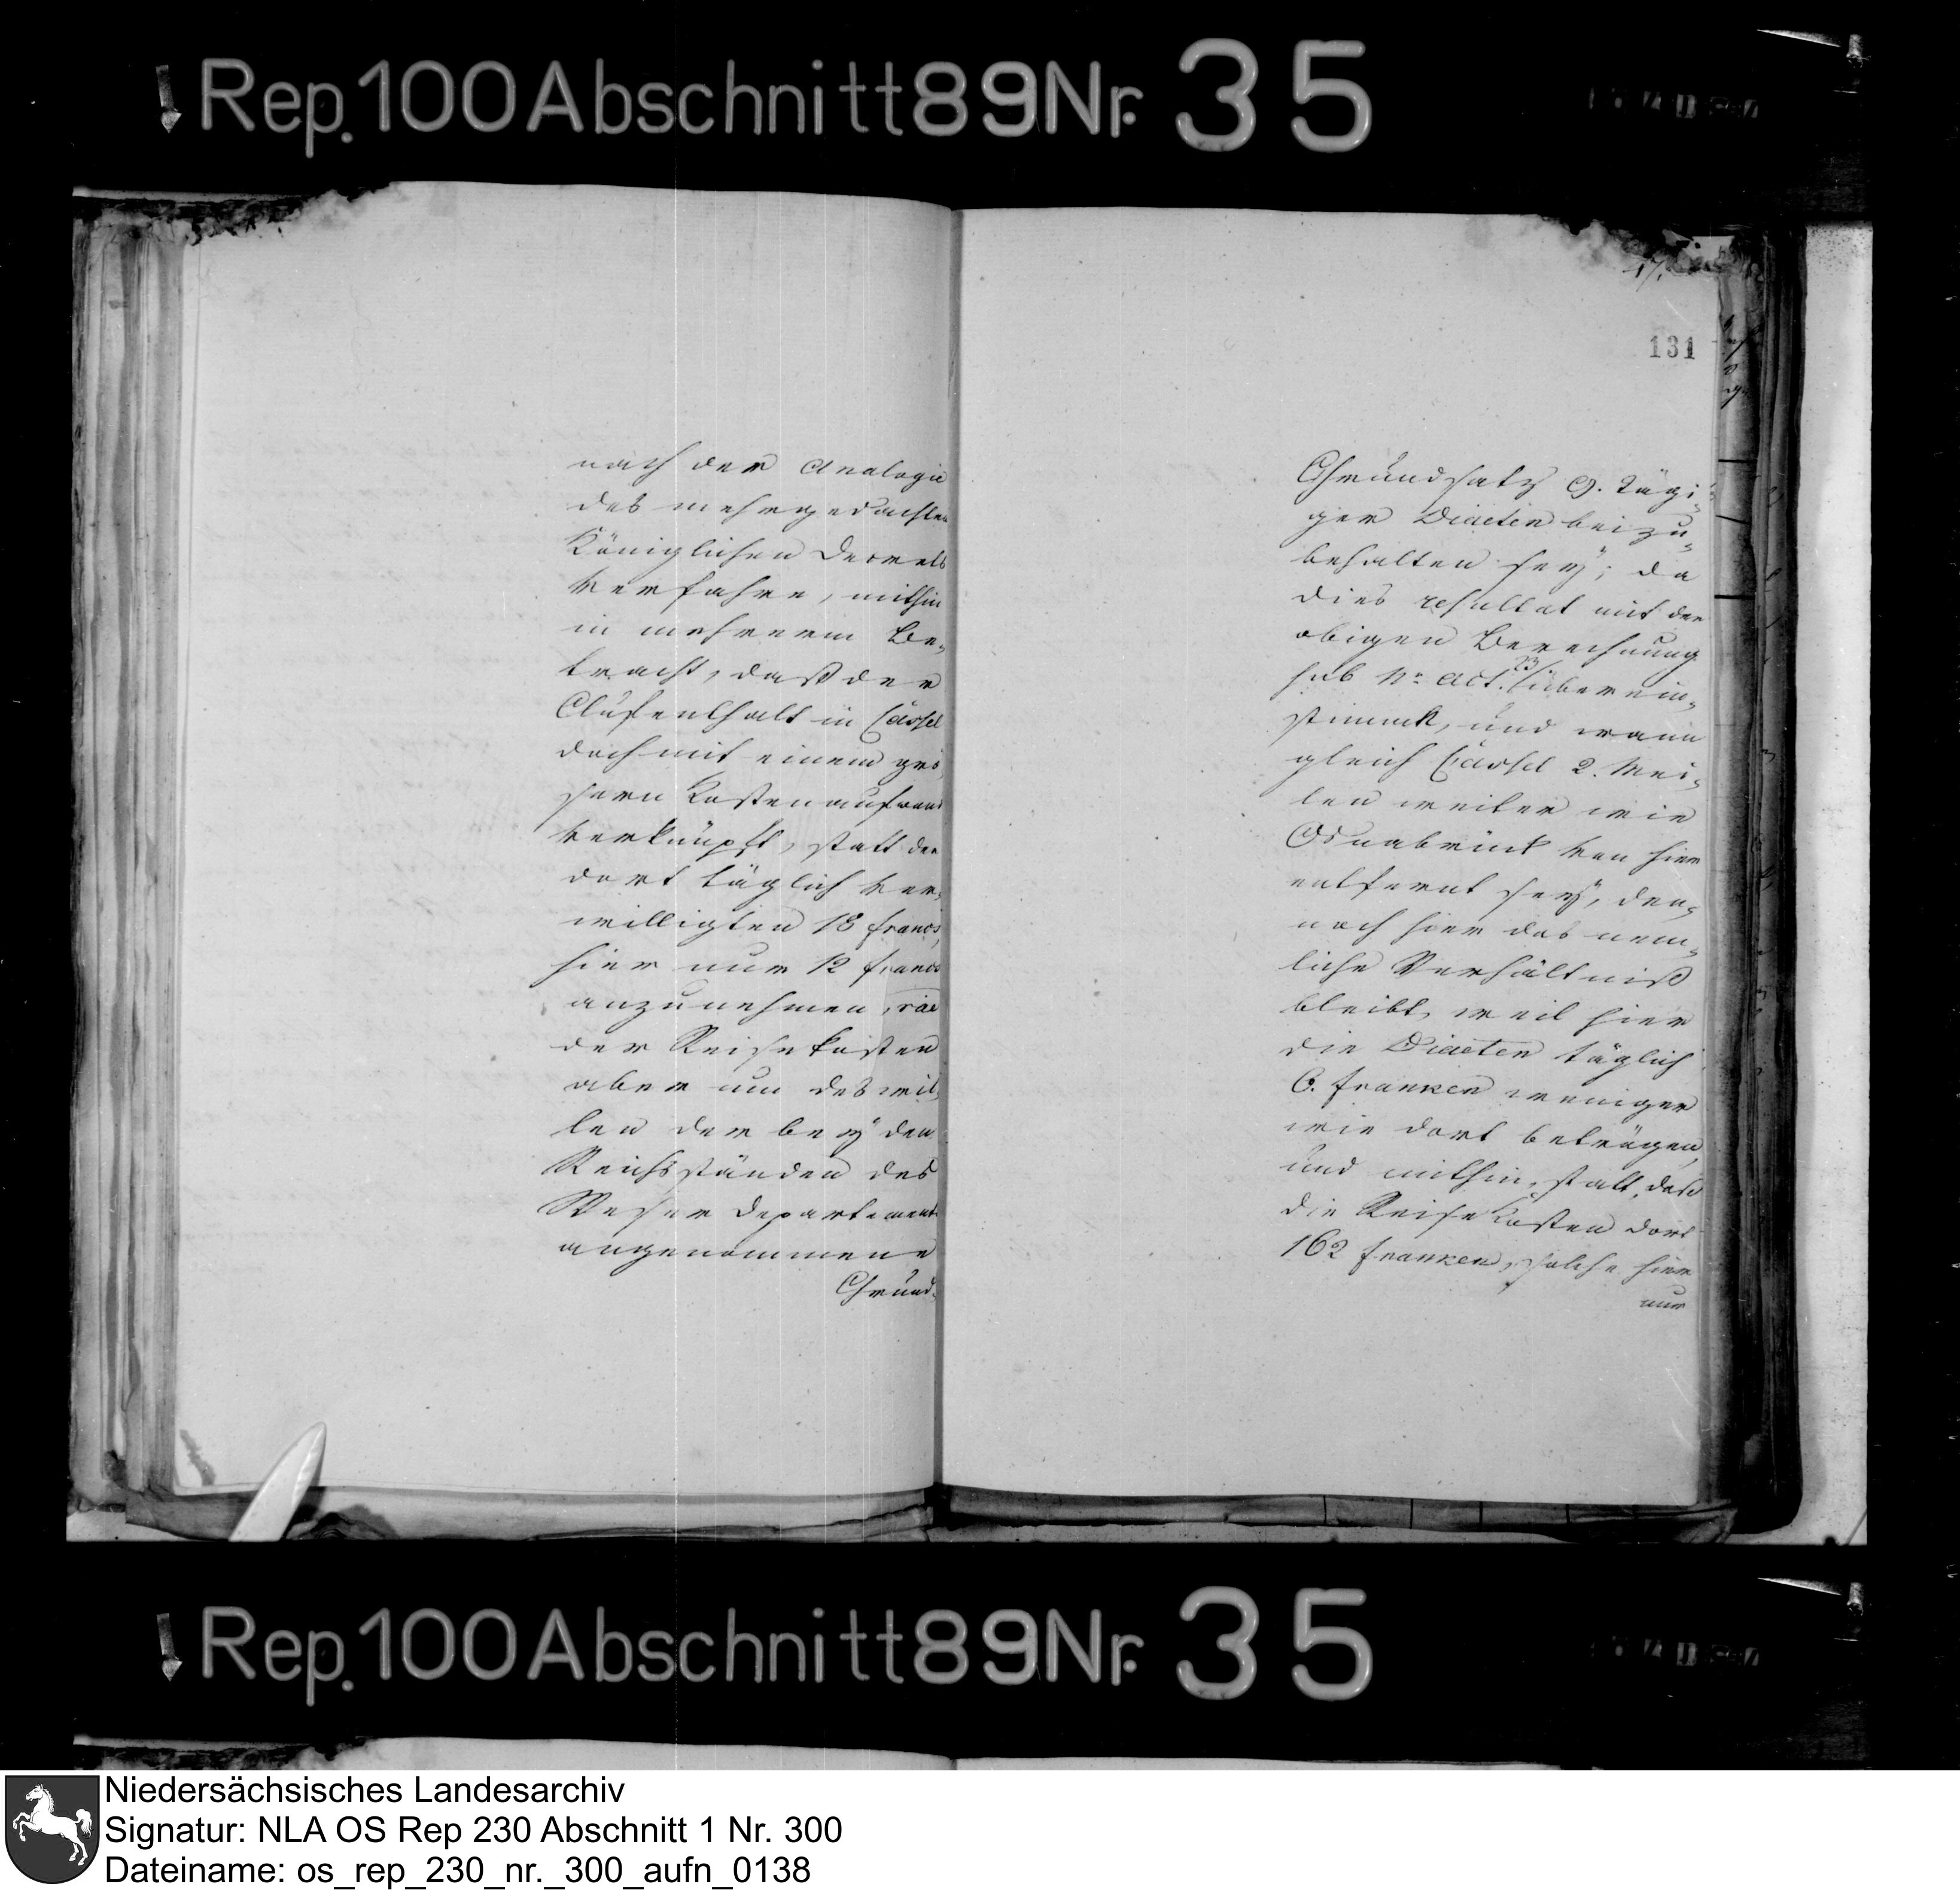 Rep. 100 Abschnitt 89 Nr. 35
nach der Analogie
des mehrgedachten
Königlichen Decrets
verfahre, mithin
in mehrerem Be-
tracht, daß der
Aufenthalt in Cassel
doch mit einem grö-
ßern Kostenaufwand
verknüpft, statt der
dort täglich ver-
willigten 18 francs,
hier nur 12 francs
anzunehmen,
der Reisekosten
aber um deswil-
len der bey den
Reichsständen des
Weser Departements
angenommene
Grund-
131
Grundsatz 9. tägi-
ger Diaeten beizu-
behalten sey; da
dies resultat mit der
obigen Berechnung
sub Nr. act. 23/. überein-
stimmt, und wann
gleich Cassel 2. Mei-
len weiter wie
Osnabrück von hier
entfernt sey, den-
noch hier das nem-
liche Verhältniß
bleibt, weil hier
die Diaeten täglich
6. Franken weniger
wie dort betrügen,
und mithin, statt, daß
die Reisekosten dort
162 Franken, solche hier
nur
Rep. 100 Abschnitt 89 Nr. 35
Niedersächsisches Landesarchiv
Signatur: NLA OS Rep 230 Abschnitt 1 Nr. 300
Dateiname: os_rep_230_nr._300_aufn_0138